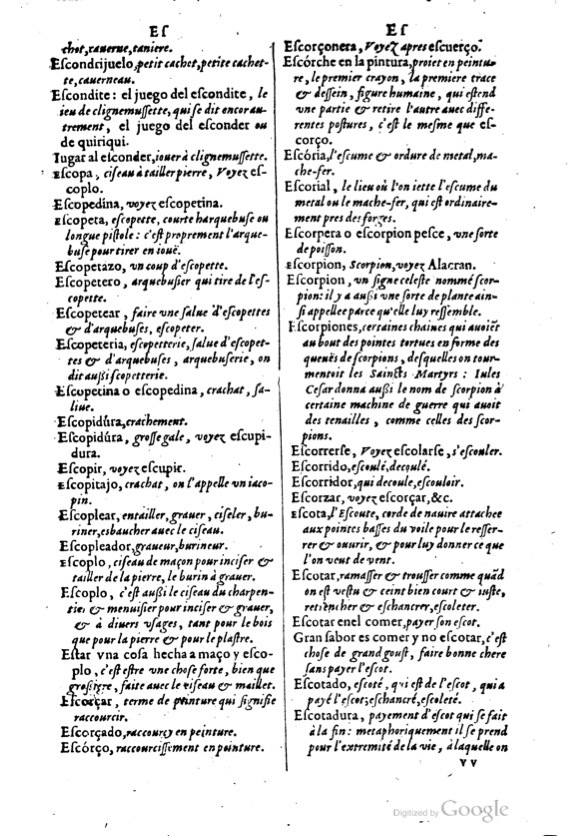 Eſ
chot, cauerne, taniere.
Eſcondrijuelo, petit cachot, petite cachet-
te, cauerneau.
Eſcondite: el juego del eſcondite, le
ieu de clignemuſſette, qui ſe dit encor au-
trement, el juego del eſconder ou
de quiriqui.
Iugar al eſconder, iouer à clignemuſſette.
Eſcopa, ciſeau à tailler pierre, Voyez eſ-
coplo.
Eſcopedina, voyez eſcopetina.
Eſcopeta, eſcopette, courte harquebuſe ou
longue piſtole: c'eſt proprement l'arque-
buſe pour tirer en ioüe.
Eſcopetazo, vn coup d'eſcopette.
Eſcopetero, arquebuſier qui tire de l'eſ-
copette.
Eſcopetear, faire vne ſalue d'eſcopettes
& d'arquebuſes, eſcopeter.
Eſcopeteria, eſcopetterie, ſalue d'eſcopet-
tes & d'arquebuſes, arquebuſerie, on
dit außi ſcopetterie.
Eſcopetina o eſcopedina, crachat, ſa-
liue.
Eſcopidúra, crachement.
Eſcopidúra, groſſe gale, voyez eſcupi-
dura.
Eſcopir, voyez eſcupir.
Eſcopitajo, crachat, on l'appelle vn iaco-
pin.
Eſcoplear, entailler, grauer, ciſeler, bu-
riner, esbaucher auec le ciſeau.
Eſcopleador, graueur, burineur.
Eſcoplo, ciſeau de maçon pour inciſer &
tailler de la pierre, le burin à grauer.
Eſcoplo, c'eſt außi le ciſeau du charpen-
tier & menuiſier pour inciſer & grauer,
& à diuers vſages, tant pour le bois
que pour la pierre & pour le plaſtre.
Eſtar vna coſa hecha a maço y eſco-
plo, c'eſt eſtre vne choſe forte, bien que
groſſiere, faite auec le ciſeau & maillet.
Eſcorçar, terme de peinture qui ſignifie
raccourcir.
Eſcorçado, raccourcy en peinture.
Eſcórço, raccourciſſement en peinture.
Eſ
Eſcorçonera, Voyez apres eſcuerço.
Eſcórche en la pintura, proiet en peintu-
re, le premier crayon, la premiere trace
& deſſein, figure humaine, qui eſtend
vne partie & retire l'autre auec diffe-
rentes poſtures, c'eſt le meſme que eſ-
corço.
Eſcória, l'eſcume & ordure de metal, ma-
che-fer.
Eſcorial, le lieu où l'on iette l'eſcume du
metal ou le mache-fer, qui eſt ordinaire-
ment pres des forges.
Eſcorpera o eſcorpion peſce, vne ſorte
de poiſſon.
Eſcorpion, Scorpion, voyez Alacran.
Eſcorpion, vn ſigne celeſte nommé ſcor-
pion: il y a außi vne ſorte de plante ain-
ſi appellee parce qu'elle luy reſſemble.
Eſcorpiones, certaines chaines qui auoiēt
au bout des pointes tortues en forme des
queuës de ſcorpions, deſquelles on tour-
mentoit les Saincts Martyrs: Iules
Ceſar donna außi le nom de ſcorpion à
certaine machine de guerre qui auoit
des tenailles, comme celles des ſcor-
pions.
Eſcorrerſe, Voyez eſcolarſe, s'eſcouler.
Eſcorrido, eſcoulé, decoulé.
Eſcorridor, qui decoule, eſcouloir.
Eſcorzar, voyez eſcorçar, &c.
Eſcota, l'Eſcoute, corde de nauire attachee
aux pointes baſſes du voile pour le reſſer-
rer & ouurir, & pour luy donner ce que
l'on veut de vent.
Eſcotar, ramaſſer & trouſſer comme quād
on eſt veſtu & ceint bien court & iuſte,
retrencher & eſchancrer, eſcoleter.
Eſcotar en el comer, payer ſon eſcot.
Gran ſabor es comer y no eſcotar, c'eſt
choſe de grand gouſt, faire bonne chere
ſans payer l'eſcot.
Eſcotado, eſcoté, qui eſt de l'eſcot, qui a
payé l'eſcot, eſchancré, eſcoleté.
Eſcotadura, payement d'eſcot qui ſe fait
à la fin: metaphoriquement il ſe prend
pour l'extremité de la vie, à laquelle on
V V
Digitized by Google